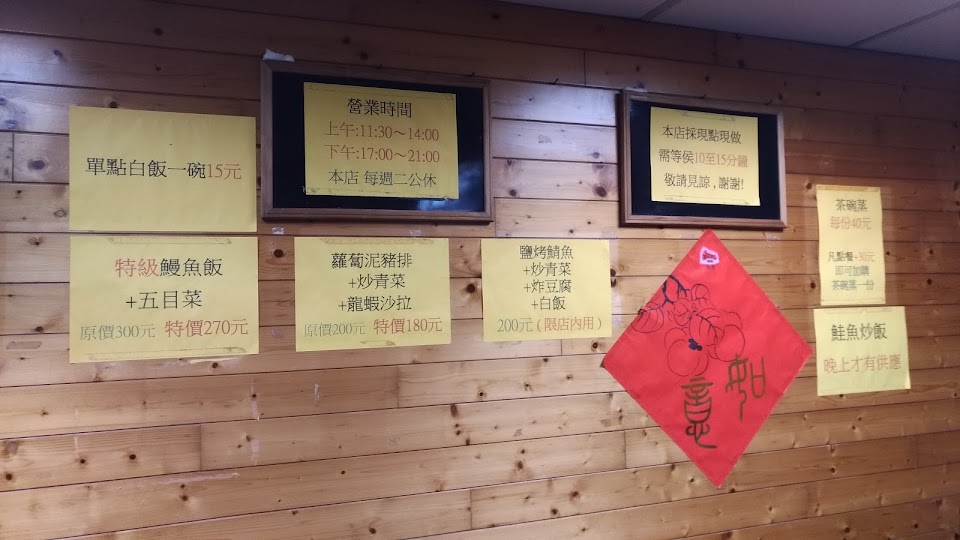 單點白飯一碗15元
營業時間
上午:11:30～14:00
下午:17:00～21:00
本店 每週二公休
本店採現點現做
需等侯10至15分鐘
敬請見諒,謝謝!
茶碗蒸
每份40元
凡點餐+30元
即可加購
茶碗蒸一份
特級鰻魚飯
+五目菜
原價300元 特價270元
蘿蔔泥豬排
+炒青菜
+龍蝦沙拉
原價200元 特價180元
鹽烤鯖魚
+炒青菜
+炸豆腐
+白飯
200元(限店內用)
鮭魚炒飯
晚上才有供應
如意